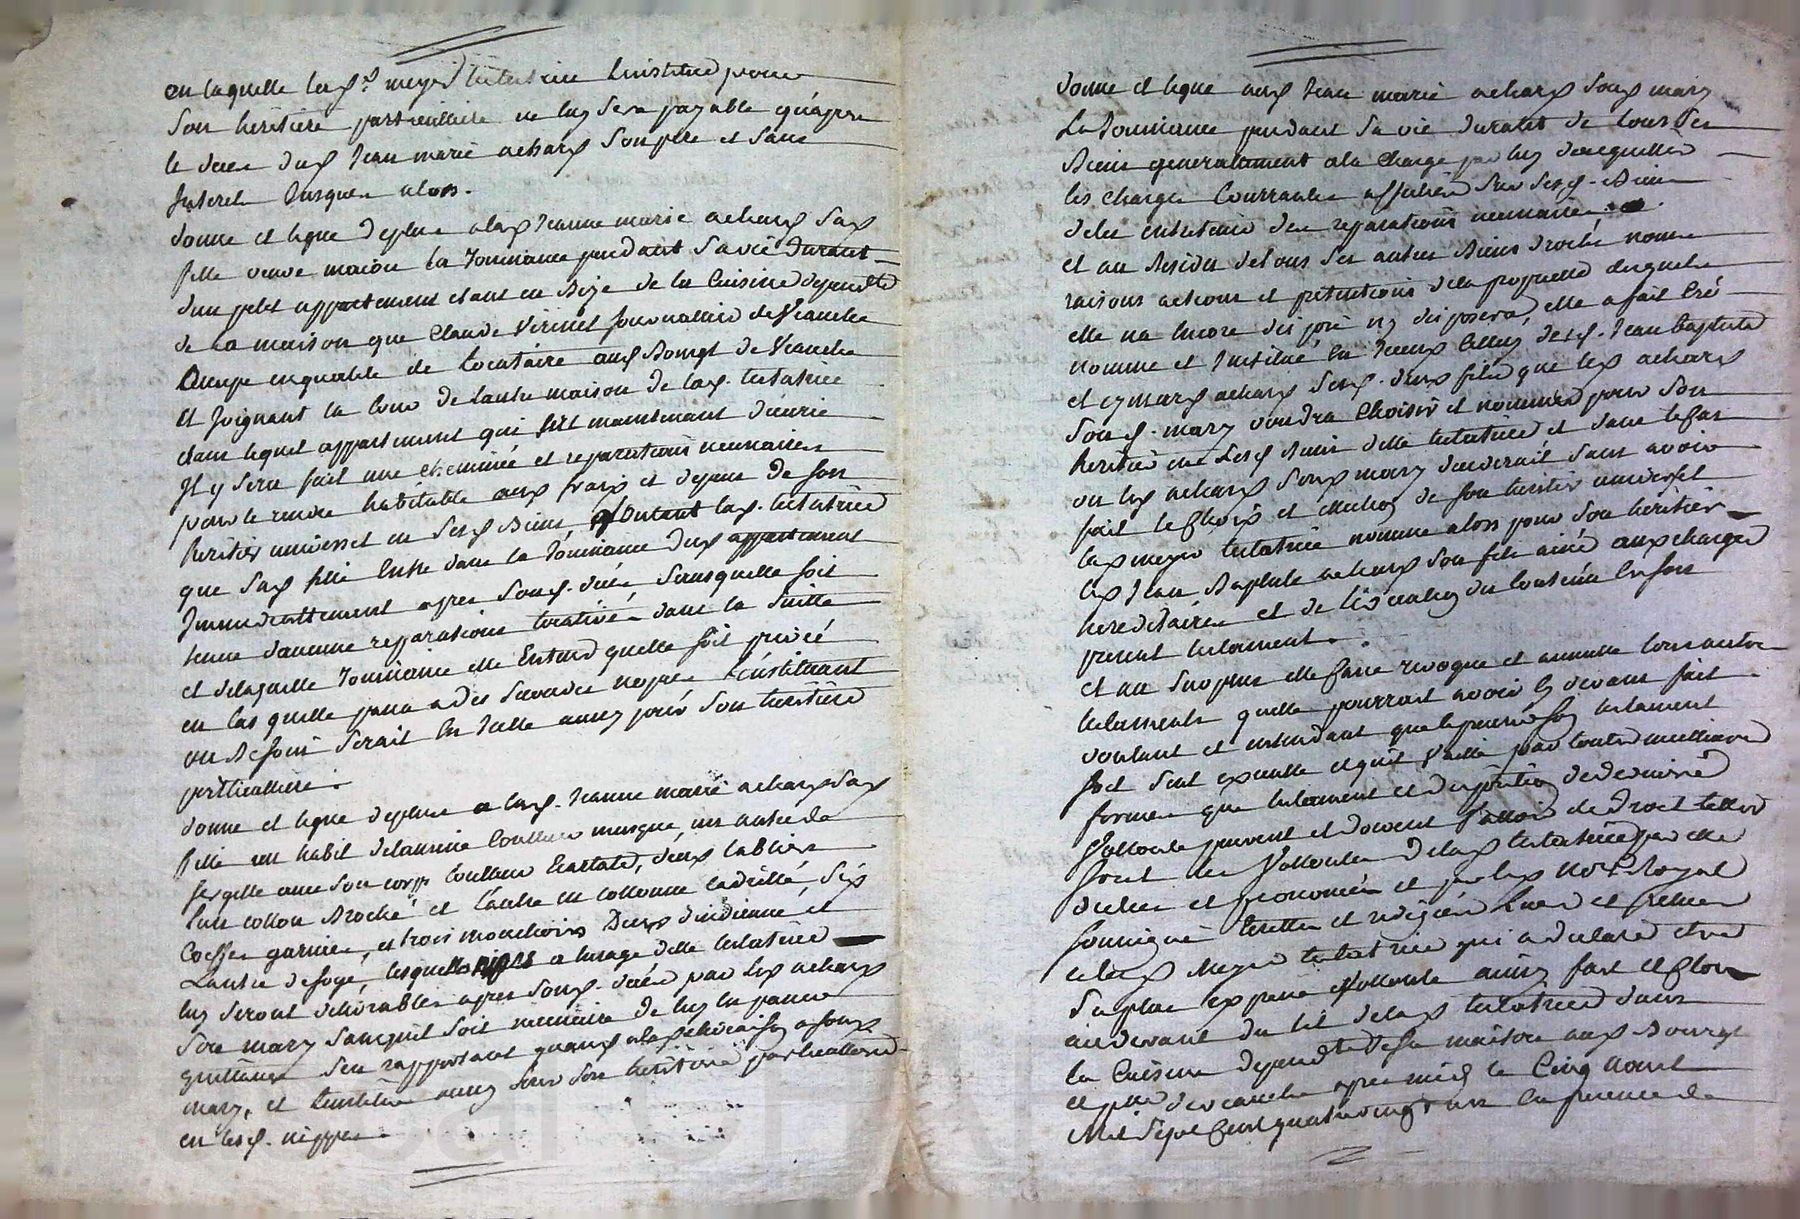 en laquelle lad. meyer testatrice l'institue pour
son héritiere particuliaire ne luy sera payable qu'apres
le deces dud. Jean marie achard son pere et sans
Interet Jusques alors.
donne et legue deplus a lad. Jeanne marie achard sad.
fille veuve la Jouissance pendant sa vie durant
d'un petit appartement étant en Bize de la Cuisine dependte
de sa maison que Claude journallier de
Occupe en qualité de Locataire aud. Bourgt de
et Joignant la Cour de l'autre maison de lad. testatrice
dans lequel appartement qui sert maintenant d'écurie
Il y sera fait une cheminée et reparations necessaires
pour le rendre habitable aux fraix et depens de son
heritier universel en sesd. Biens, Voulant lad. testatrice
que sad. fille Entre dans la Jouissance dud. appartement
Immediattement apres sond. décès, sans quelle soit
tenue d'aucune reparations locative dans la suitte
et delaquelle Jouissance elle Entend quelle soit privée
en cas quelle passa a des secondes nopces L'instituant
ou Besoin serait En Icelle aussy pour son heritiere
particulliere.
donne et legue deplus a lad. Jeanne marie achard sad.
fille un habit delamine Coulleur musque, un autre de
sergette avec son corps Coulleur, deux tabliers
l'un cotton Broché et l'autre en cottonne cadrillé, six
Coeffes garnies, et trois mouchoirs Deux d'indienne et
L'autre desoye, lesquelles nippes a lusage delle testatrice
luy seront delivrables apres sond. décès par led. achard
son mary sans quil soit necessaire de luy en passer
quittance s'en rapportant quand a lad. delivraison a sond.
mary, et l'institue aussy pour son héritiere particulliere
en lesd. nippes.
donne et legue aud. Jean marie achard sond. mary
La Jouissance pendant sa vie durant de tous ses
Biens generalement ala Charge par luy d'acquitter
les charges Courrantes affectées sur sesd. Biens
deles entretenir des reparations necessaires.
et au Residu detous ses autres Biens droits noms
raisons actions et pretentions dela proprietté desquels
elle na Encore disposé ny disposera, elle a fait Créé
nommé et Institué en Iceux Celluy desd. Jean Baptiste
et achard sesd. deux fils que led. achard
sond. mary voudra Choisir et nommer pour son
heritier en sesd. Biens delle testatrice et dans le cas
ou led. achard sond. mary decederait sans avoir
fait le Choix et Election de son heritier universel
lad. meyer testatrice nomme alors pour son héritier
led. Jean Baptiste achard son fils ainé aux charges
hereditaires et de l'éxécution du Contenu En son
present testament.
et au surplus elle Casse revoque et annulle tous autres
testaments quelle pourrait avoir Cy devant fait
voulant et entendant que le present son testament
soit seul executté et quil vaille par toutes meilleures
formes que testament et disposition de derniere
Vollonté peuvent et doivent valloir de droit telles
sont les Vollontés delad. testatrice par elle
dictées et prononcées et par led. notre Royal
soussigné Ecrittes et redigées Lues et relues
a lad. Meyer testatrice qui a declaré etre
sa plus expresse Vollonté ainsy fait et Clos
au devant du lit delad. testatrice dans
la Cuisine dependte desa maison aud. Bourgt
et psse de apres midy le Cinq
Mil Sept Cent quatrevingt un En presence de